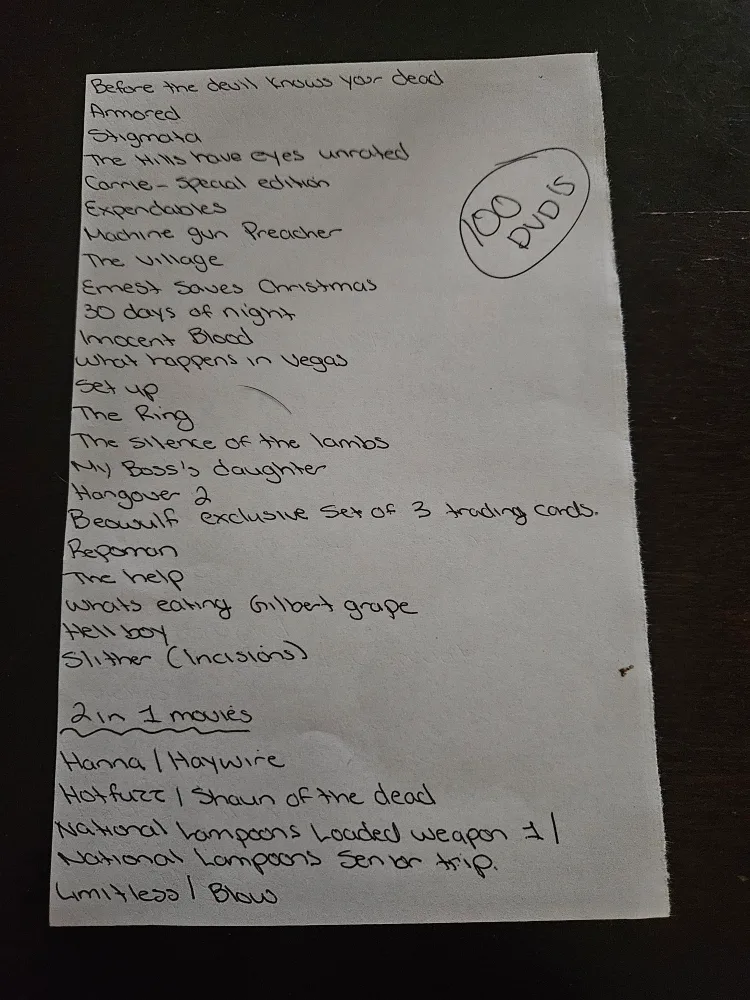 Before the devil knows your dead
Armored
Stigmata
The Hills have eyes unrated
Carrie - Special edition
Expendables
Machine gun Preacher
The Village
Ernest Saves Christmas
30 days of night
Inocent Blood
What happens in Vegas
Set up
The Ring
The silence of the lambs
My Boss's daughter
Hangover 2
Beowulf exclusive Set of 3 trading cards.
Repoman
The help
Whats eating Gilbert grape
Hellboy
Slither (Incisions)
100
DVD'S
2 in 1 movies
Hanna / Haywire
Hotfuzz / Shaun of the dead
National Lampoons Loaded weapon 1 /
National Lampoons Senior trip.
Limitless / Blow